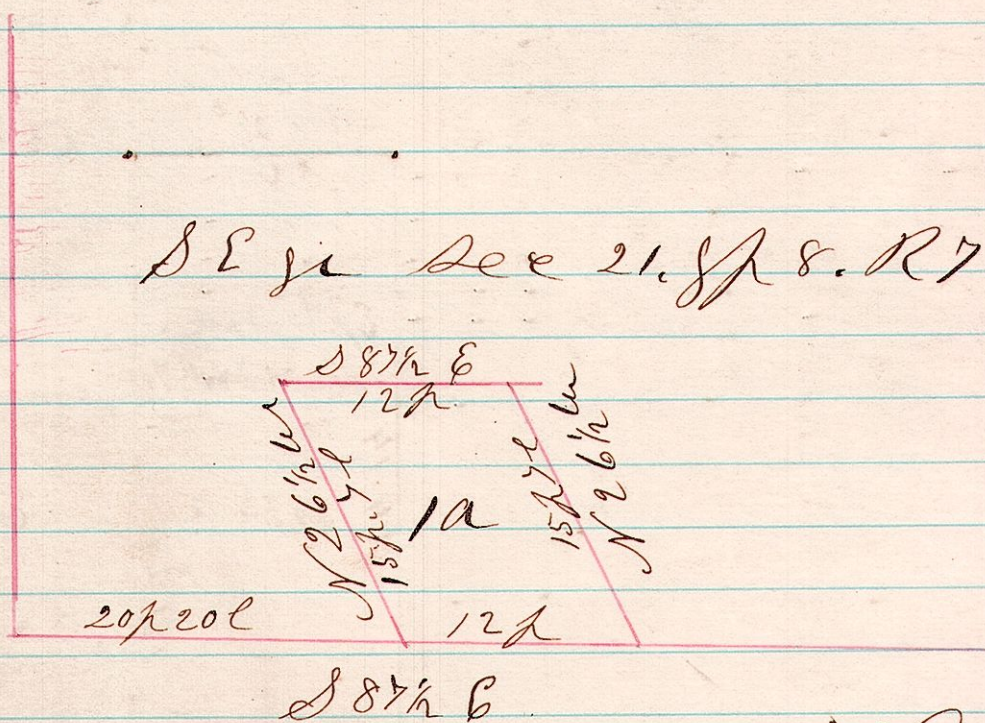 S E qr Sec 21. Tp 8. R 7
S 87½ E
12 p.
N 26½ W
15 p. 7 l
1 a
15 p 7 l
N 26½ W
20 p 20 l
12 p
S 87½ E.